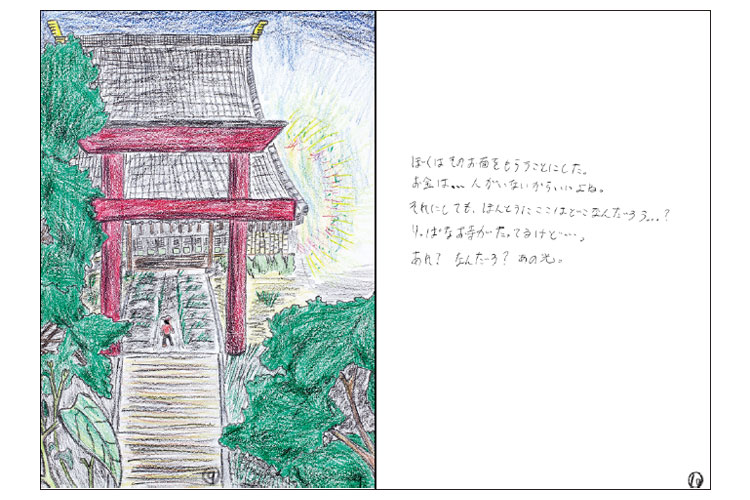 ぼくはそのお面をもらうことにした。
お金は、、、人がいないからいいよね。
それにしても、ほんとうにここはどこなんだろう、、、?
りっぱなお寺がたってるけど、、、。
あれ? なんだろ? あの光。
9
10